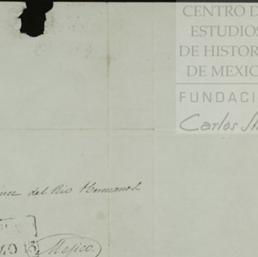 CENTRO D
ESTUDIOS
DE HISTOR
DE MEXIC
FUNDACI
Carlos Sl
del Rio Hermanos
Mexico.